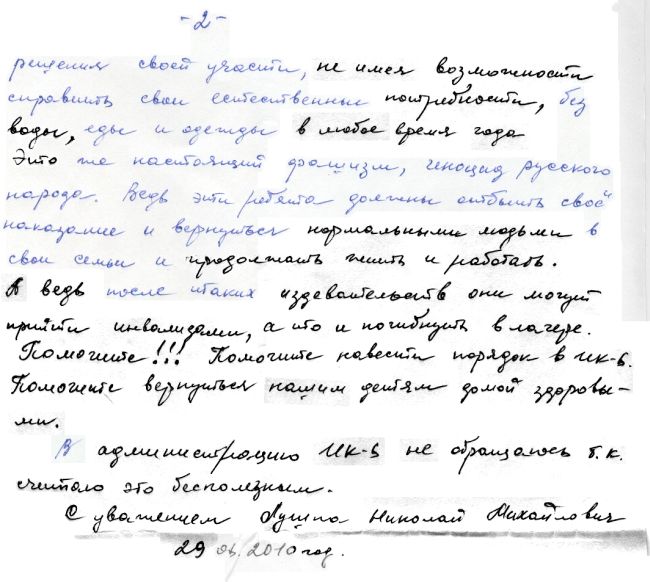 - 2 -
решения своей участи, не имея возможности
справить свои естественные потребности, без
воды, еды и одежды в любое время года
Это же настоящий фашизм, геноцид русского
народа. Ведь эти ребята должны отбыть своё
наказание и вернуться нормальными людьми в
свои семьи и продолжать жить и работать.
А ведь после таких издевательств они могут
прийти инвалидами, а то и погибнуть в лагере.
Помогите!!! Помогите навести порядок в ИК-6.
Помогите вернуться нашим детям домой здоровы-
ми.
В администрацию ИК-6 не обращаюсь т.к.
считаю это бесполезным.
С уважением Николай Михайлович
29 2010 год.